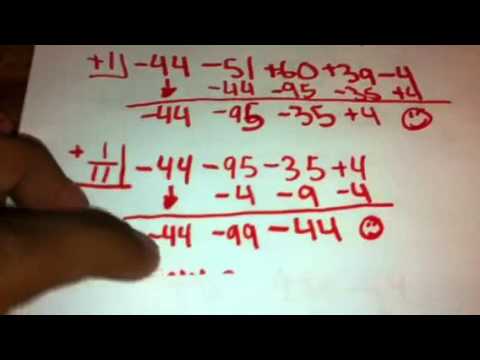 +1 -44 -51 +60 +39 -4
-44 -95 -35 +4
-44 -95 -35 +4
+ 1/11 -44 -95 -35 +4
-4 -9 -4
-44 -99 -44